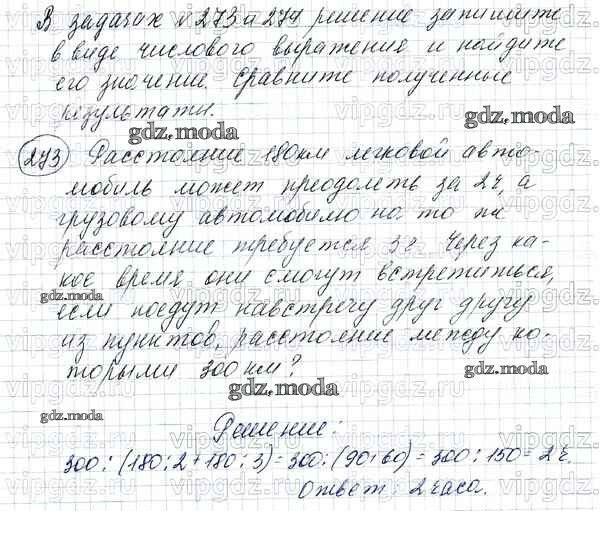 В задачах №273 и 274 решение запишите
в виде числового выражения и найдите
его значение. Сравните полученные
результаты.
gdz.moda gdz.moda
273 Расстояние 180 км легковой авто-
мобиль может преодолеть за 2 ч, а
грузовому автомобилю на то же
расстояние требуется 3 г. Через ка-
кое время они смогут встретиться,
gdz.moda
если поедут навстречу друг другу
из пунктов, расстояние между ко-
торыми 300 км?
gdz.moda gdz.moda
gdz.moda
Решение:
300 : (180 : 2 + 180 : 3) = 300 : (90+60) = 300 : 150 = 2 ч.
Ответ : 2 часа.